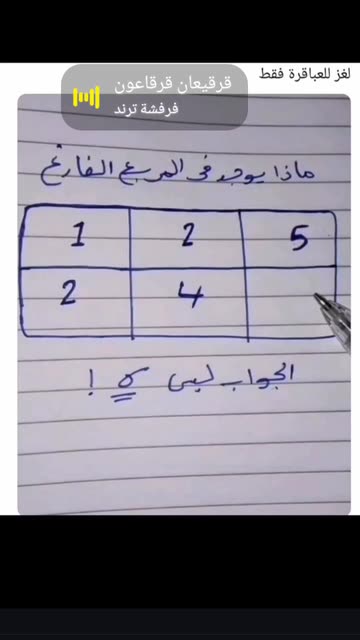 لغز للعباقرة فقط
قرقيعان قرقاعون
فرفشة ترند
ماذا يوجد في المربع الفارغ
1 2 5
2 4
الجواب ليس ٥ !